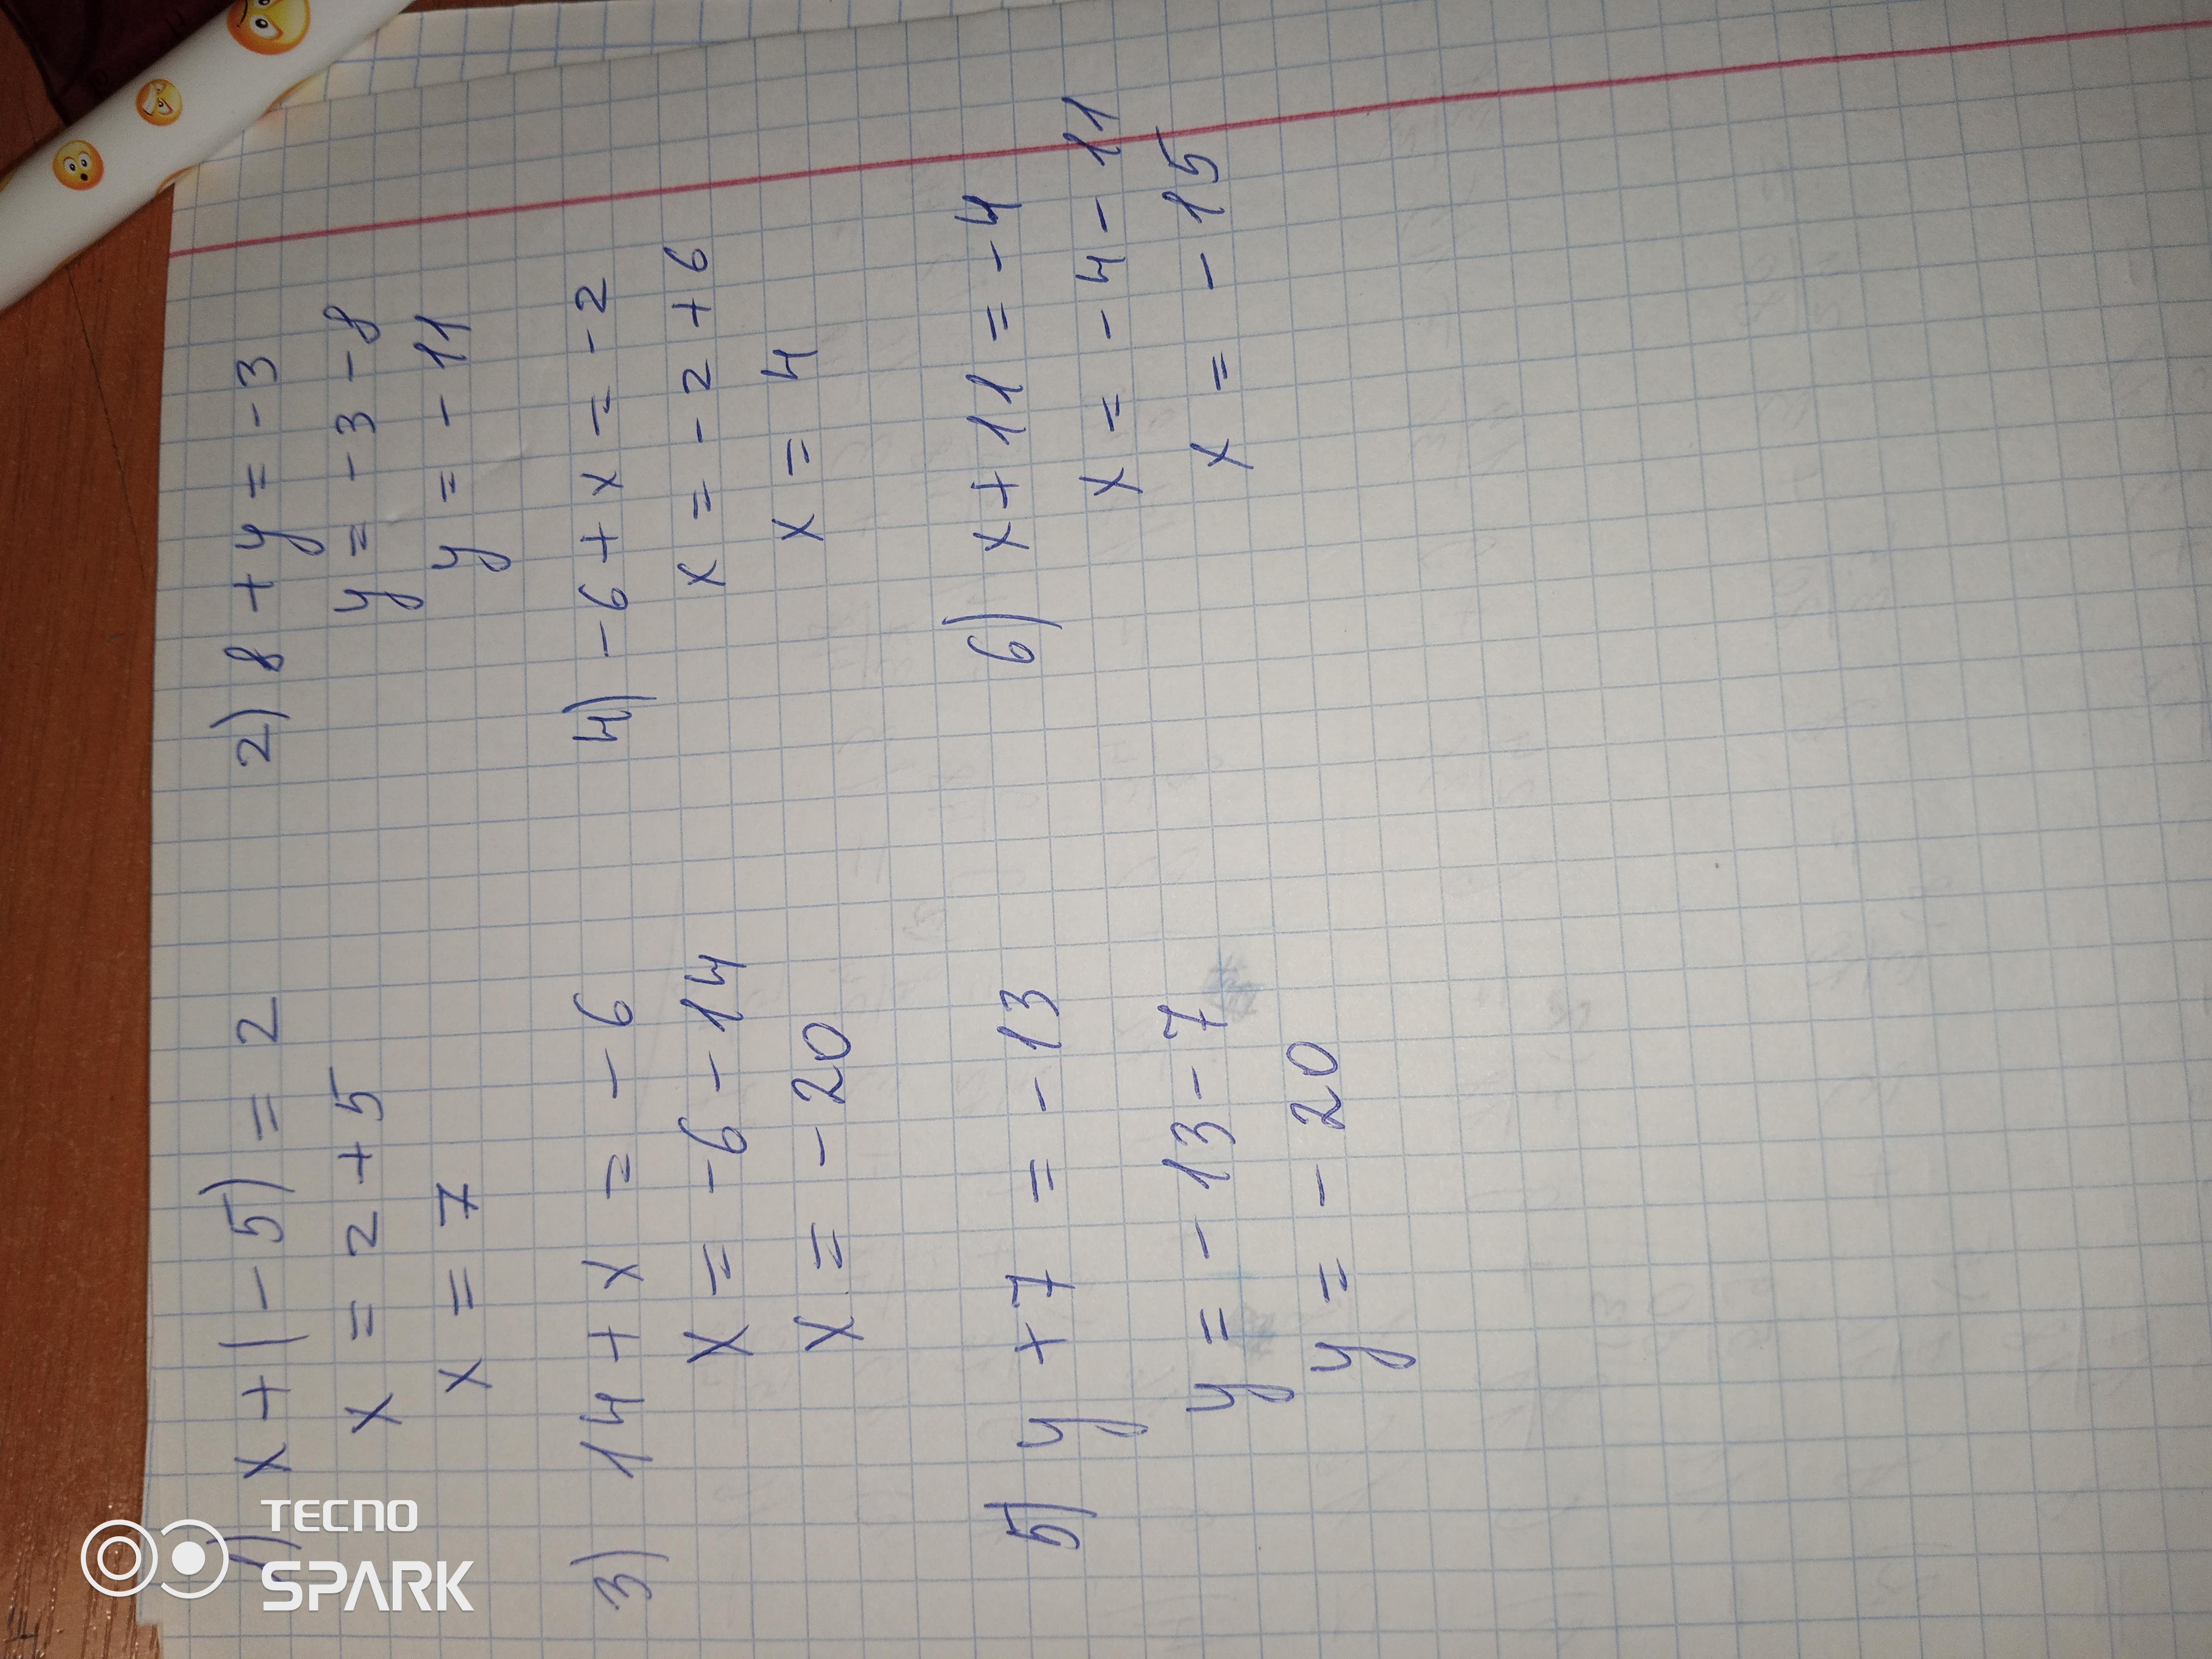 1) x + (-5) = 2
x = 2 + 5
x = 7
2) 8 + y = -3
y = -3 - 8
y = -11
3) 14 + x = -6
x = -6 - 14
x = -20
4) -6 + x = -2
x = -2 + 6
x = 4
5) y + 7 = -13
y = -13 - 7
y = -20
6) x + 11 = -4
x = -4 - 11
x = -15
TECNO
SPARK